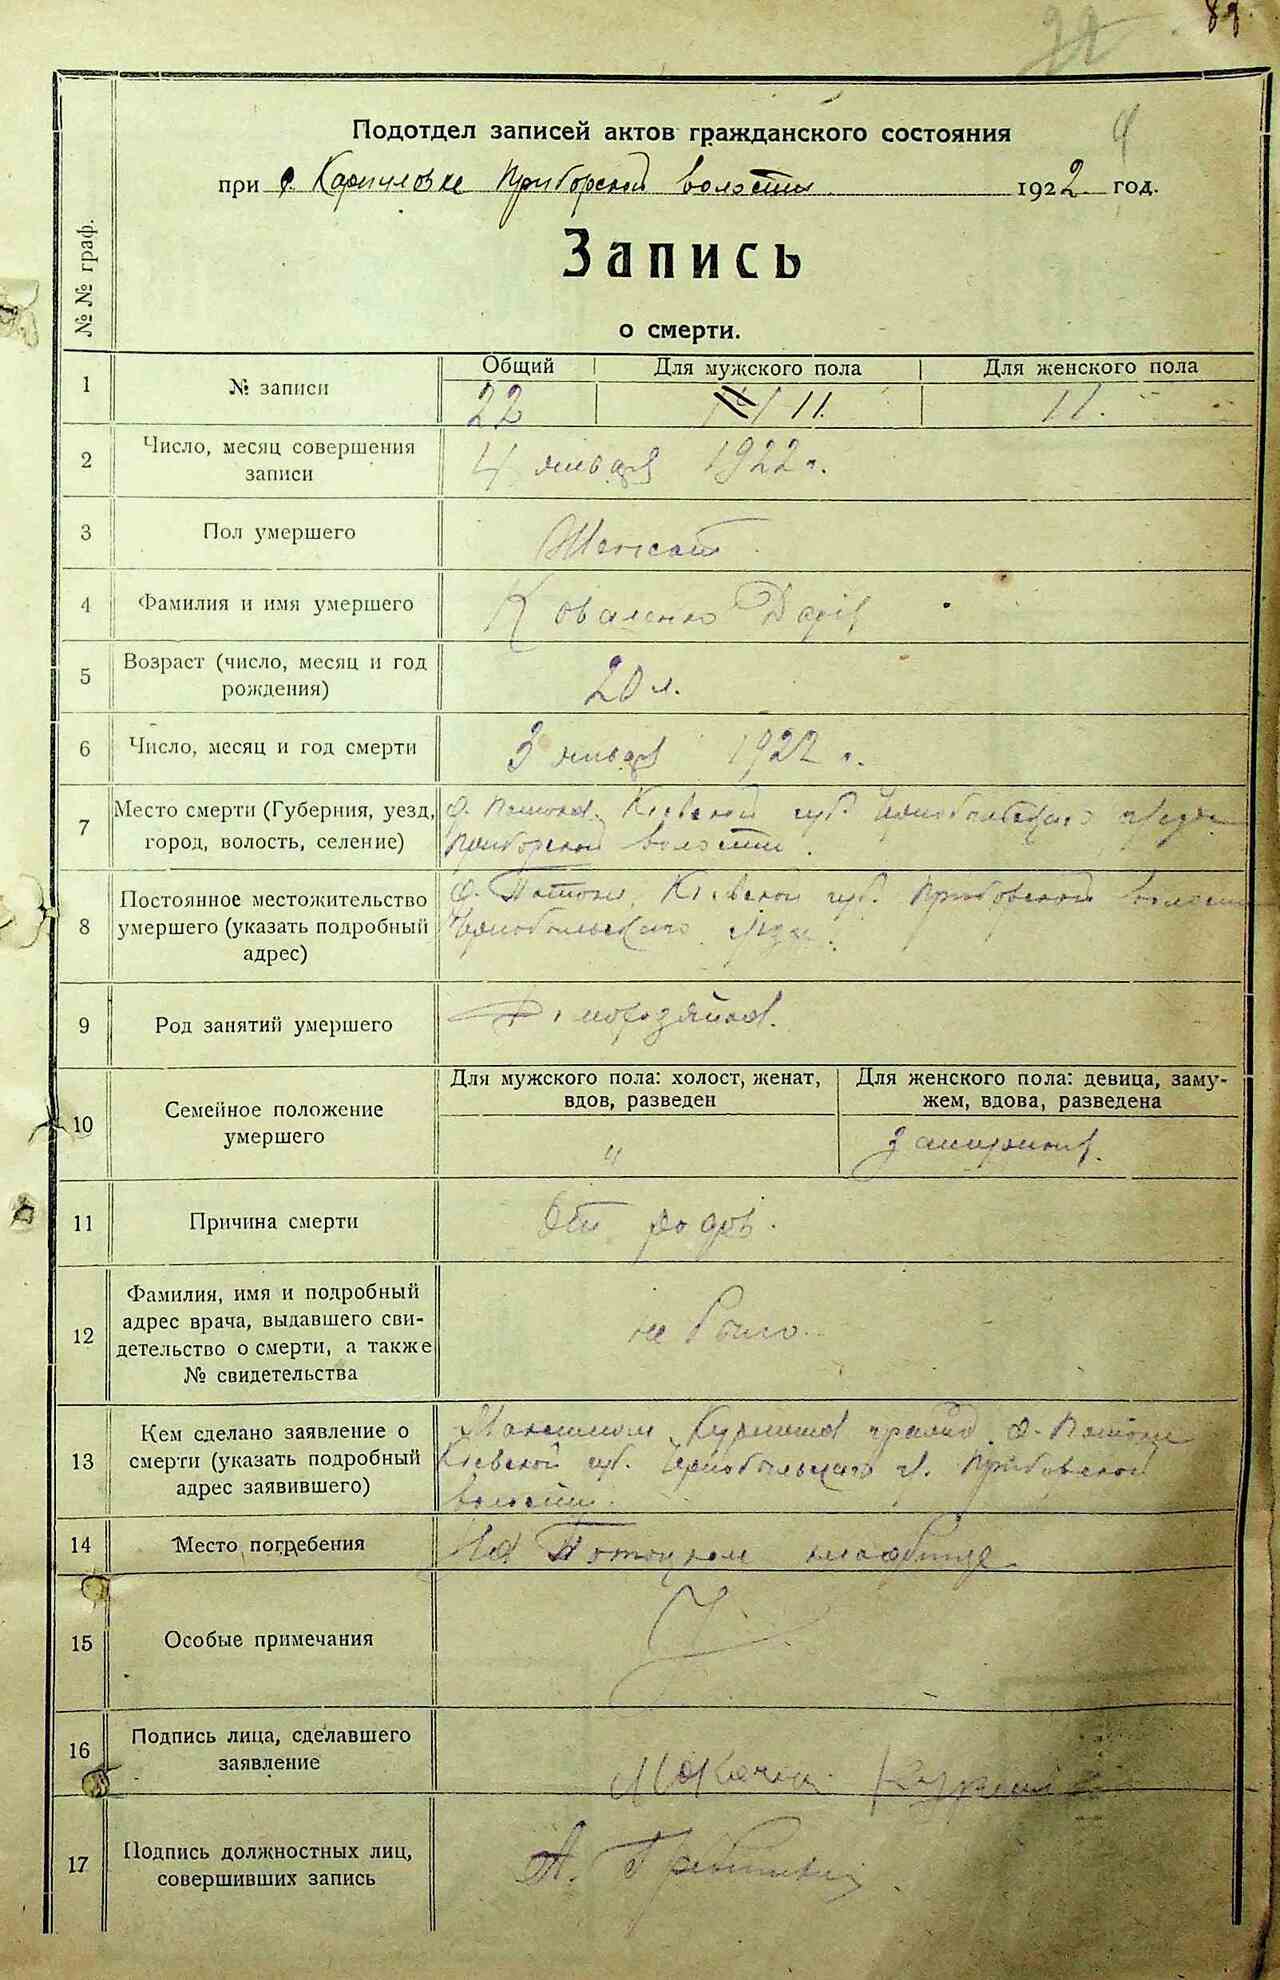 Подотдел записей актов гражданского состояния
при с. Карпиловке Приборской волости 1922 год.
Запись
о смерти.
№ № граф.
1 № записи Общий Для мужского пола Для женского пола
22 11. 11.
2 Число, месяц совершения записи
4 января 1922 г.
3 Пол умершего
Женскаго
4 Фамилия и имя умершего
Коваленко Дария
5 Возраст (число, месяц и год рождения)
20 л.
6 Число, месяц и год смерти
3 января 1922 г.
7 Место смерти (Губерния, уезд, город, волость, селение)
Киевской губ. Чернобыльскаго уезда
Приборской волости.
8 Постоянное местожительство умершего (указать подробный адрес)
Киевской губ. волости
Чернобыльскаго уезда.
9 Род занятий умершего
Домохозяйка.
10 Семейное положение умершего
Для мужского пола: холост, женат, вдов, разведен
Для женского пола: девица, замужем, вдова, разведена
"
замужняя.
11 Причина смерти
От родов.
12 Фамилия, имя и подробный адрес врача, выдавшего свидетельство о смерти, а также № свидетельства
не было.
13 Кем сделано заявление о смерти (указать подробный адрес заявившего)
Киевской губ. Чернобыльскаго у.
волости.
14 Место погребения
На кладбище
15 Особые примечания
16 Подпись лица, сделавшего заявление
17 Подпись должностных лиц, совершивших запись
А.